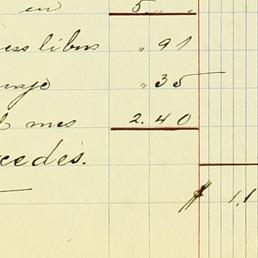 en 5 " "
ess libus " 91
naje " 35
mes 2.40
cedes.
$ 1.1